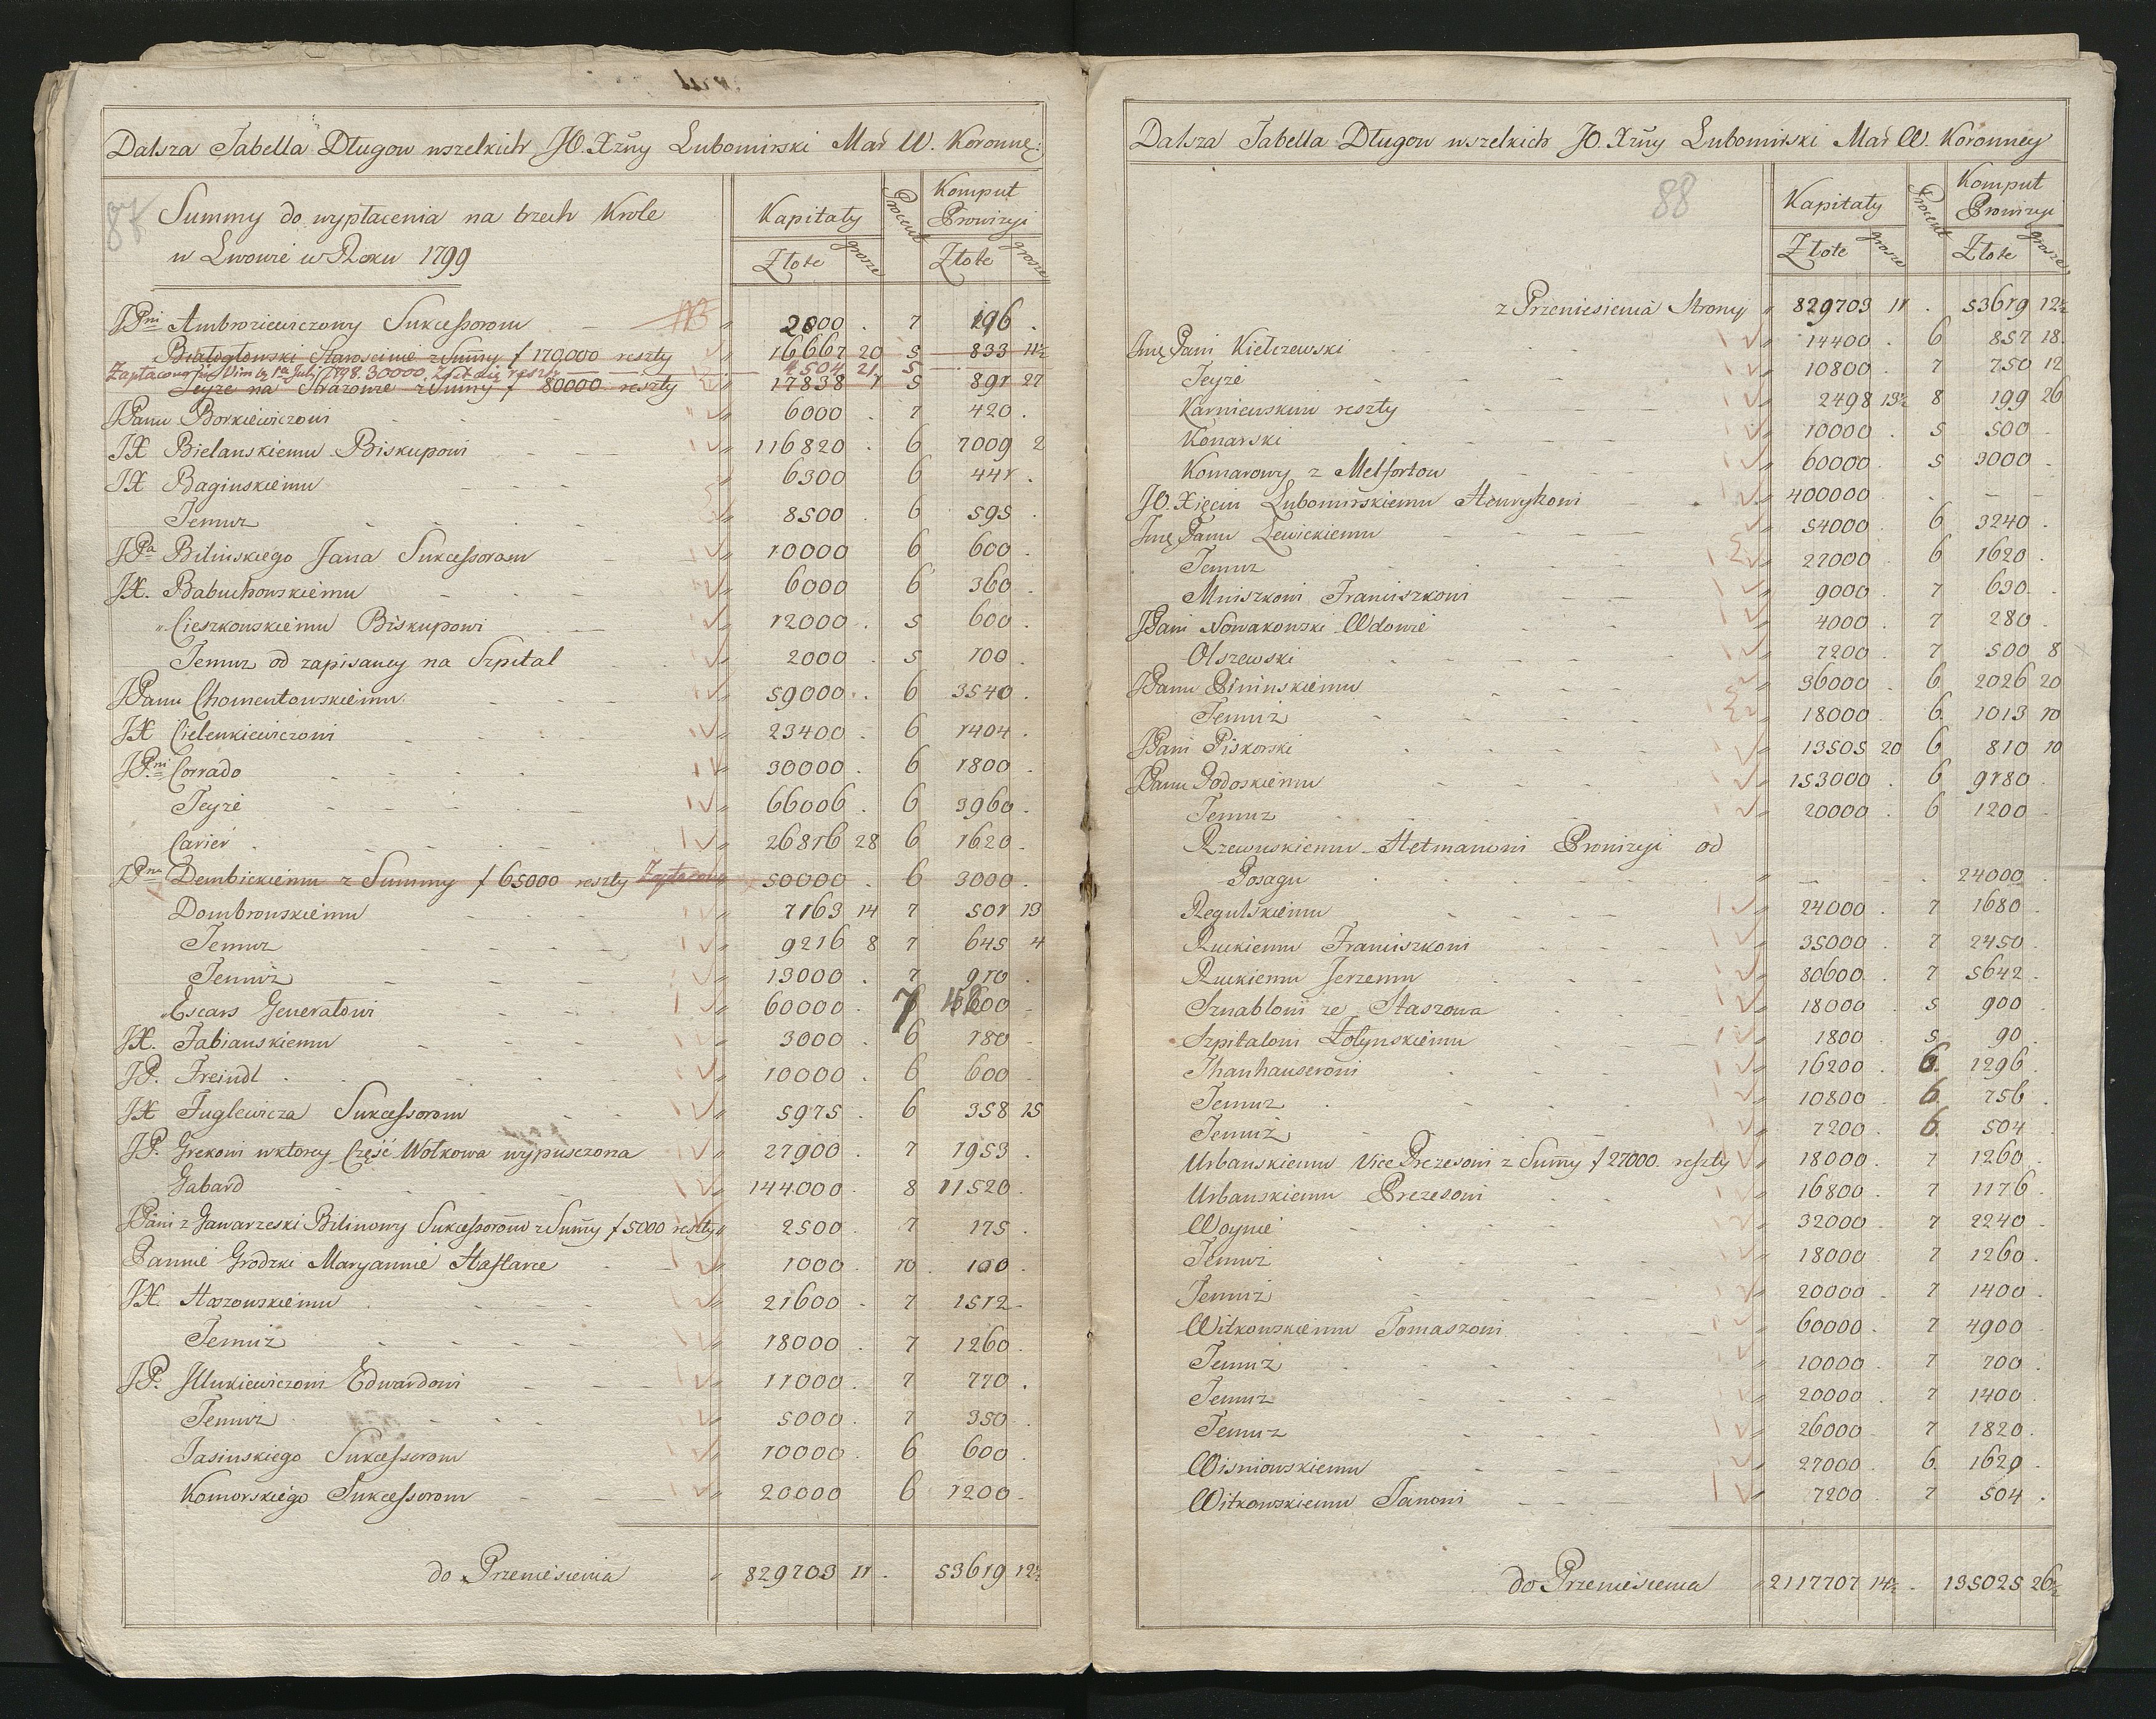 Dalsza Tabella Długow wszelkich JO. Xżny Lubomirski Mar W. Koronney
87
Summy do wypłacenia na trzech Krole
w Lwowie w Roku 1799
Kapitały Procent Komput Prowizyi
Złote grosze Złote grosze
JPni Ambroziewiczowy Sukcessorom " 2800 . 7 196 .
Białogłowski Starościnie z Summy f 170,000 reszty " 16667 20 5 833 11½
Zapłacono JX Vim 1a Julij 1798. 30000. Zostaie reszty 4504 21 5
Teyże na Strażowie z Sumy f 80000 reszty " 17838 1 5 891 27
JPanu Borkiewiczowi " 6000 . 7 420 .
JX Bielanskiemu Biskupowi " 116820 . 6 7009 2
JX Baginskiemu " 6300 6 441 .
Temuz " 8500 . 6 595 .
JPa Bilinskiego Jana Sukcessorom " 10000 6 600 .
JX. Babuchowskiemu " 6000 6 360 .
" Cieszkowskiemu Biskupowi " 12000 . 5 600 .
Temuz od zapisaney na Szpital " 2000 . 5 100 .
JPanu Chomentowskiemu " 59000 . 6 3540 .
JX Cielenkiewiczowi " 23400 . 6 1404 .
JPni Corrado " 30000 . 6 1800 .
Teyże " 66006 . 6 3960 .
Carier " 26816 28 6 1620 .
JPnu Dembickiemu z Summy f 65000 reszty Zapłacono 50000 . 6 3000 .
Dombrowskiemu " 7163 14 7 501 13
Temuz " 9216 8 7 645 4
Temuż " 13000 . 7 910 .
" Escars Generałowi " 60000 . 7 4200
JX. Fabianskiemu " 3000 . 6 180
JP. Freindl " 10000 . 6 600
JX Fuglewicza Sukcessorom " 5975 . 6 358 15
JP. Grekowi w ktorey Część Wołkowa wypuszczona " 27900 . 7 1953 .
Gabard " 144000 . 8 11520 .
JPani z Gawarzeski Bilinowy Sukcessorom z Summy f 5000 reszty " 2500 . 7 175 .
Pannie Grodzki Maryannie 1000 . 10 . 100 .
JX. Haszowskiemu " 21600 . 7 1512 .
Temuż " 18000 . 7 1260 .
JP. Edwardowi " 11000 . 7 770 .
Temuż " 5000 . 7 350 .
Jasinskiego Sukcessorom " 10000 . 6 600 .
Komorskiego Sukcessorom " 20000 6 1200 .
do Przeniesienia " 829703 11 . 53619 12½
Dalsza Tabella Długow wszelkich JO. Xżny Lubomirski Mar W. Koronney
88
Kapitały Procent Komput Prowizyi
Złote grosze Złote grosze
z Przeniesienia Strony " 829703 11 . 53619 12½
Jmę Pani Kielczewski " 14400 . 6 857 18
Teyże " 10800 . 7 750 12
Karniewskim reszty " 2498 13½ 8 199 26
Konarski " 10000 . 5 500 .
Komarowy z Melfortow " 60000 . 5 3000 .
JO. Xięciu Lubomirskiemu Henrykowi " 400000 .
Jmę Panu Lewickiemu " 54000 . 6 3240 .
Temuz " 27000 6 1620 .
Mniszkowi Franciszkowi " 9000 . 7 630 .
JPani Nowakowski Wdowie " 4000 . 7 280 .
Olszewski " 7200 . 7 500 8
JPanu Pininskiemu " 36000 . 6 2026 20
Temuż " 18000 . 6 1013 10
JPani Piskorski " 13505 20 6 810 10
JPanu Podoskiemu " 153000 . 6 9180 .
Temuz " 20000 . 6 1200 .
Rzewuskiemu Hetmanowi Prowizyi od
Posagu " 24000
Regulskiemu " 24000 . 7 1680 .
Ruckiemu Franciszkowi " 35000 . 7 2450 .
Ruckiemu Jerzemu " 80600 . 7 5642 .
Sznablowi ze Staszowa " 18000 . 5 900 .
Szpitalowi Lołynskiemu " 1800 . 5 90 .
Thanhauserowi " 16200 . 6. 1296 .
Temuz " 10800 . 6. 756 .
Temuż " 7200 . 6. 504 .
Urbanskiemu Vice Prezesowi z Summy f 27000. reszty " 18000 . 7 1260 .
Urbanskiemu Prezesowi " 16800 . 7 1176 .
Woynie " 32000 . 7 2240 .
Temuż " 18000 . 7 1260 .
Temuż " 20000 . 7 1400 .
Witkowskiemu Tomaszowi " 60000 . 7 4900 .
Temuż " 10000 . 7 700 .
Temuz " 20000 . 7 1400 .
Temuz " 26000 7 1820 .
Wisniowskiemu " 27000 . 6. 1620 .
Witkowskiemu Janowi " 7200 . 7 504 .
do Przeniesienia " 2117707 14½ . 135025 26½